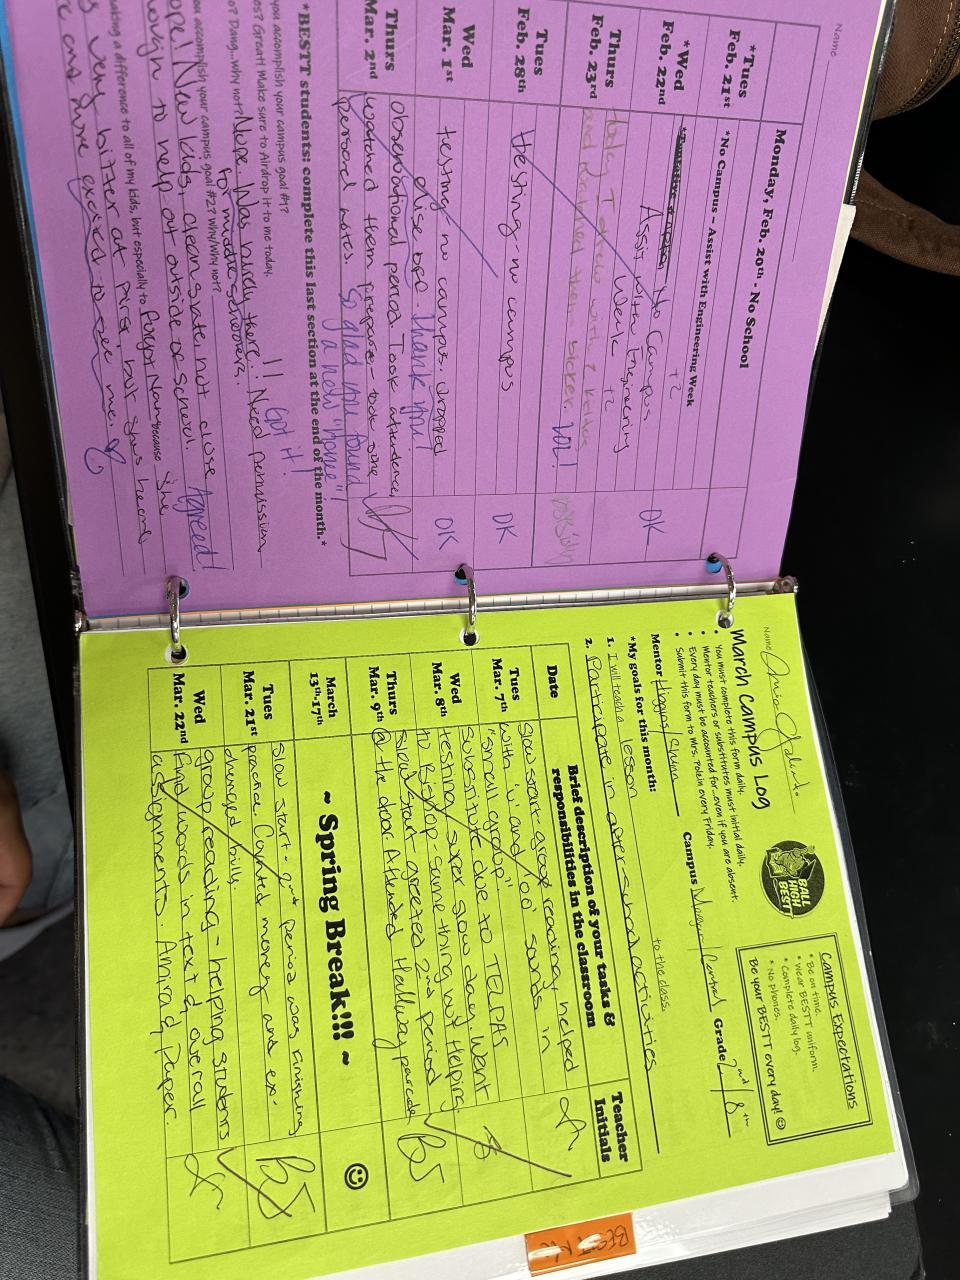 Name
Monday, Feb. 20th - No School
*Tues
Feb. 21st
*No Campus - Assist with Engineering Week
*Wed
Feb. 22nd
No Campus +2
Assist with Engineering
Week +2
OK
Thurs
Feb. 23rd
Today I drew with 2 kiddos
and watched them bicker. LOL!
Tues
Feb. 28th
testing - no campus
OK
Wed
Mar. 1st
testing no campus. dropped
else off. Thank you!
OK
Thurs
Mar. 2nd
observational period. Took attendence,
watched them prepare - took some
personal notes. So glad you found
a new "home"!
*BESTT students: complete this last section at the end of the month.*
you accomplish your campus goal #1?
es? Great! Make sure to Airdrop it to me today.
o? Dang...why not? Nope. Was barely there!! Need permission
for middle schoolers. Got it!
ou accomplish your campus goal #2? Why/Why not?
ope! New kids, clean slate, not close
ough to help out outside of school. Agreed!
making a difference to all of my kids, but especially to Forgot Name because she
s very bitter at first, but shes been
re and more excited to see me.
Name
March Campus Log
• You must complete this form daily.
• Mentor teachers or substitutes must initial daily.
• Every day must be accounted for...even if you are absent.
• Submit this form to Mrs. Polkin every Friday.
BALL
HIGH
BESTT
Campus Expectations
• Be on time.
• Wear BESTT uniform.
• Complete daily log.
• No phones.
Be your BESTT every day! ☺
Mentor Higgins/Shinn Campus Central Grade 2nd/8th
*My goals for this month:
1. I will teach a lesson to the class.
2. Participate in after-school activities
Date
Brief description of your tasks &
responsibilities in the classroom
Teacher
Initials
Tues
Mar. 7th
Slow start - group reading, helped
with 'u' and 'oo' sounds in
"small group".
Wed
Mar. 8th
Substitute due to TELPAS
testing/super slow day. Went
to Bishop - same thing w/ helping.
Thurs
Mar. 9th
Slow start greeted 2nd period
@ the door. Attended Hallway parade
BS
March
13th-17th
~ Spring Break!!! ~
☺
Tues
Mar. 21st
Slow start - 2nd period was finishing
practice. Counted money and ex-
changed/bills.
BS
Wed
Mar. 22nd
group reading - helping students
find words in text & overall
assignments. Amira & Paper.